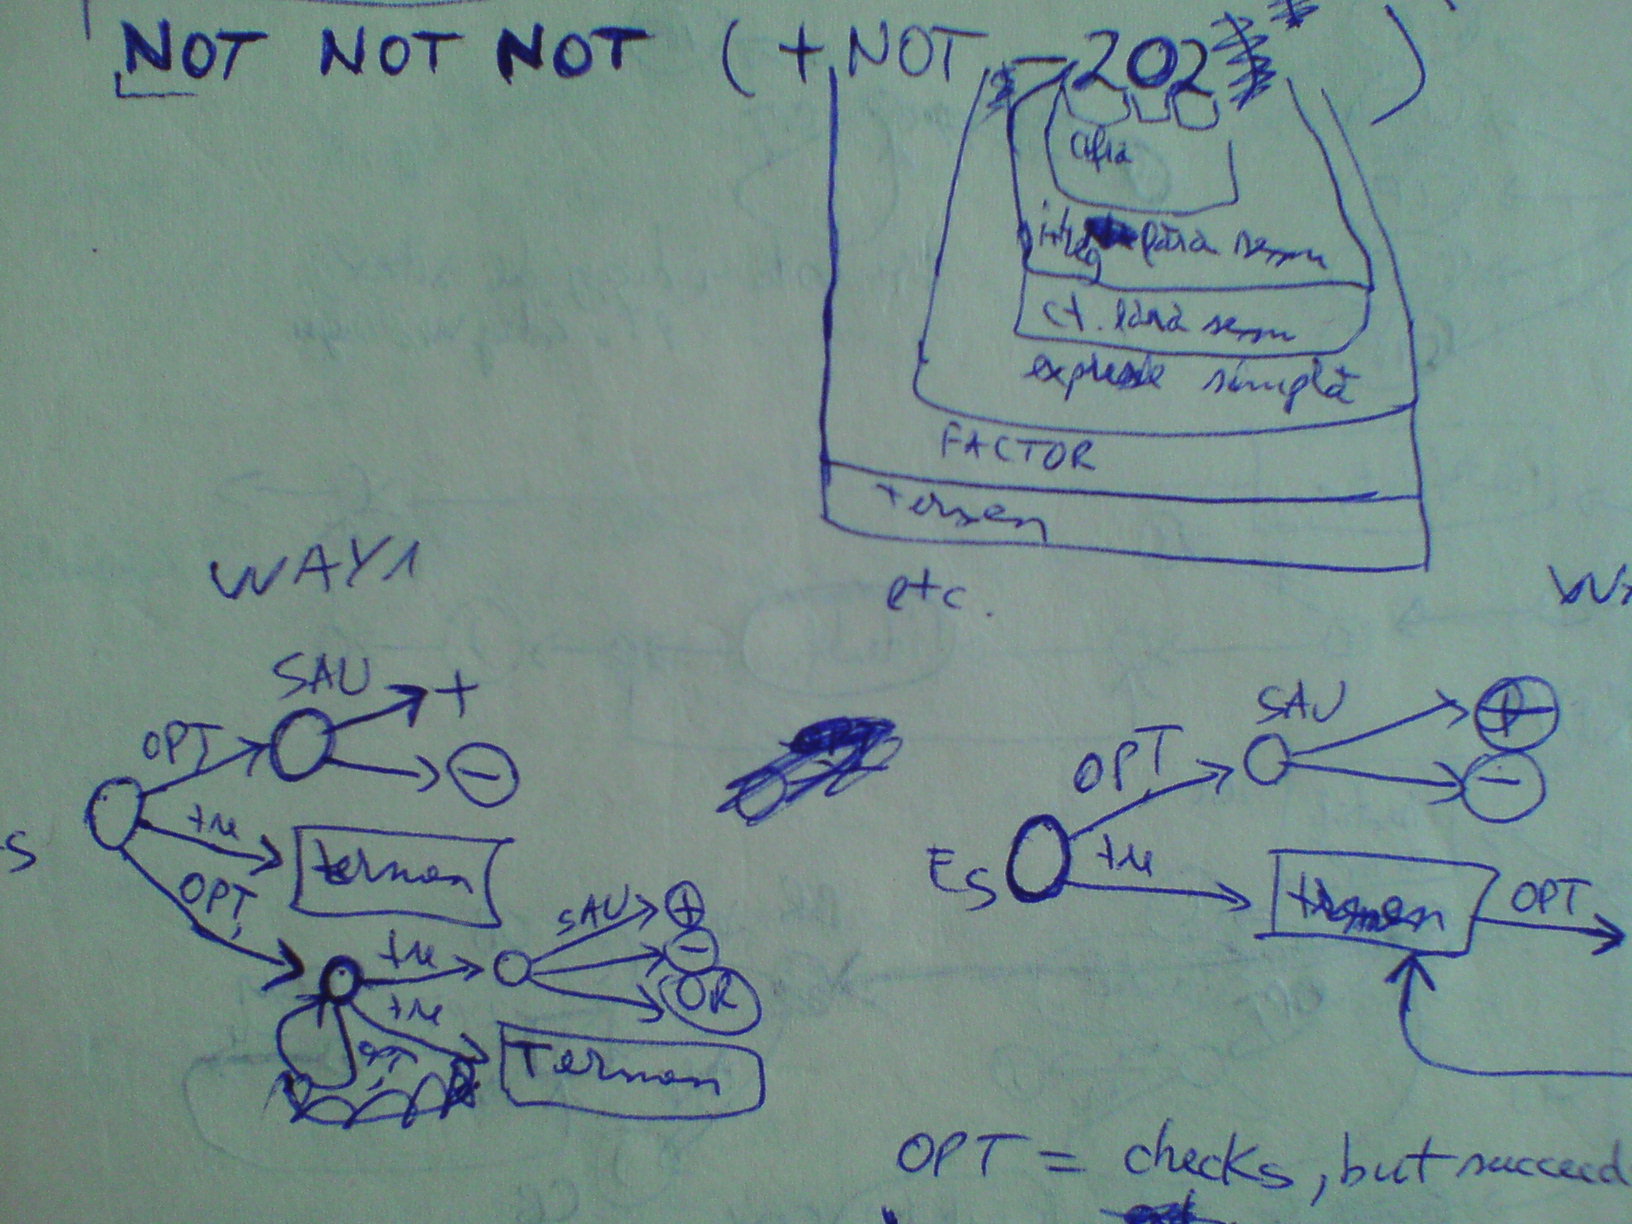 NOT NOT NOT ( + NOT - 202 )
cifră
întreg fără semn
ct. fără semn
expresie simplă
FACTOR
termen
etc.
WAY1
SAU +
OPT -
+u
S
termen
OPT
+u
SAU +
-
OR
+u
OPT
Termen
SAU +
OPT -
ES
+u
termen OPT
OPT = checks, but succeed